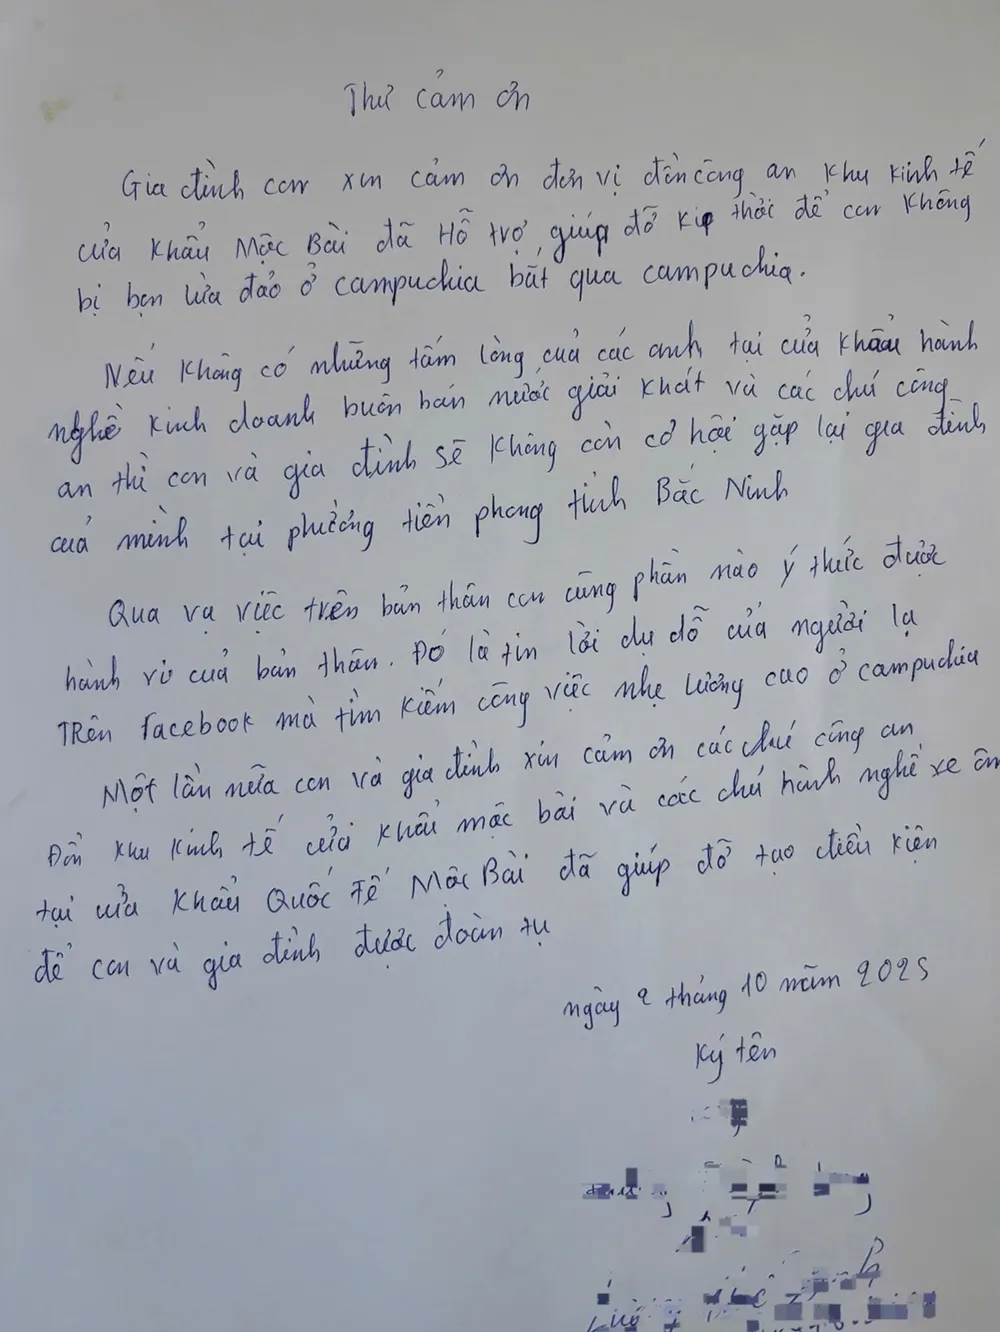 Thư cảm ơn
Gia đình con xin cảm ơn đơn vị đồn công an khu kinh tế
cửa khẩu Mộc Bài đã Hỗ trợ, giúp đỡ kịp thời để con không
bị bọn lừa đảo ở campuchia bắt qua campuchia.
Nếu không có những tấm lòng của các anh tại cửa khẩu hành
nghề kinh doanh buôn bán nước giải khát và các chú công
an thì con và gia đình sẽ không còn cơ hội gặp lại gia đình
của mình tại phường tiền phong tỉnh Bắc Ninh
Qua vụ việc trên bản thân con cũng phần nào ý thức được
hành vi của bản thân. Đó là tin lời dụ dỗ của người lạ
TRên facebook mà tìm kiếm công việc nhẹ lương cao ở campuchia
Một lần nữa con và gia đình xin cảm ơn các chú công an
Đồn khu kinh tế cửa khẩu mộc bài và các chú hành nghề xe ôm
tại cửa khẩu Quốc Tế Mộc Bài đã giúp đỡ tạo điều kiện
để con và gia đình được đoàn tụ
ngày 2 tháng 10 năm 2025
Ký tên